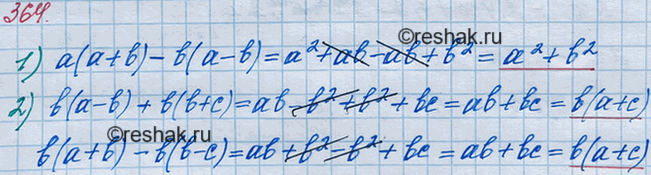 364.
©reshak.ru
1) a(a+b)-b(a-b)=a²+ab-ab+b²=a²+b²
2) b(a-b)+b(b+c)=ab-b²+b²+bc=ab+bc=b(a+c)
b(a+b)-b(b-c)=ab+b²-b²+bc=ab+bc=b(a+c)
©reshak.ru